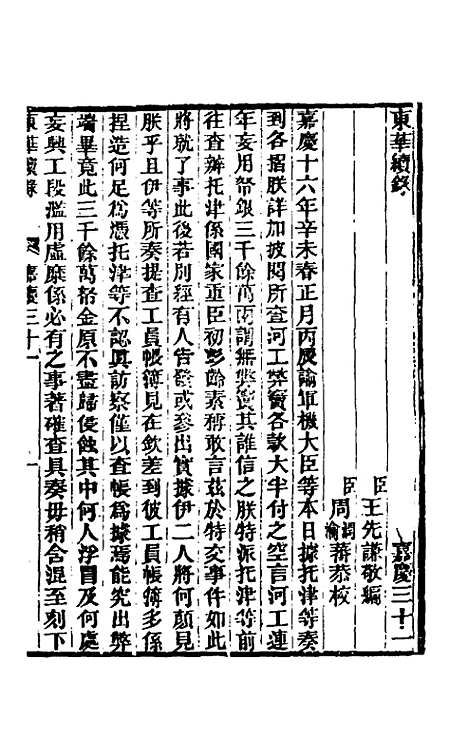 東華續錄 嘉慶三十一
臣王先謙敬編
臣周潤蕃周瀹蕃恭校
嘉慶十六年辛未春正月丙辰諭軍機大臣等本日據托津等奏
到各摺朕詳加披閱所查河工弊竇各款大半付之空言河工連
年妄用帑銀三千餘萬兩謂無弊竇其誰信之朕特派托津等前
往查辦托津係國家重臣初彭齡素稱敢言茲於特交事件如此
將就了事此後若別經有人告發或參出實據伊二人將何顏見
朕乎且伊等所奏提查工員帳簿見在欽差到彼工員帳簿多係
捏造何足為憑托津等不認真訪察僅以查帳為據焉能究出弊
端畢竟此三千餘萬帑金原不盡歸侵蝕其中何人浮冒及何處
妄興工段濫用虛糜係必有之事著確查具奏毋稍含混至刻下
東華續錄 嘉慶三十一 一